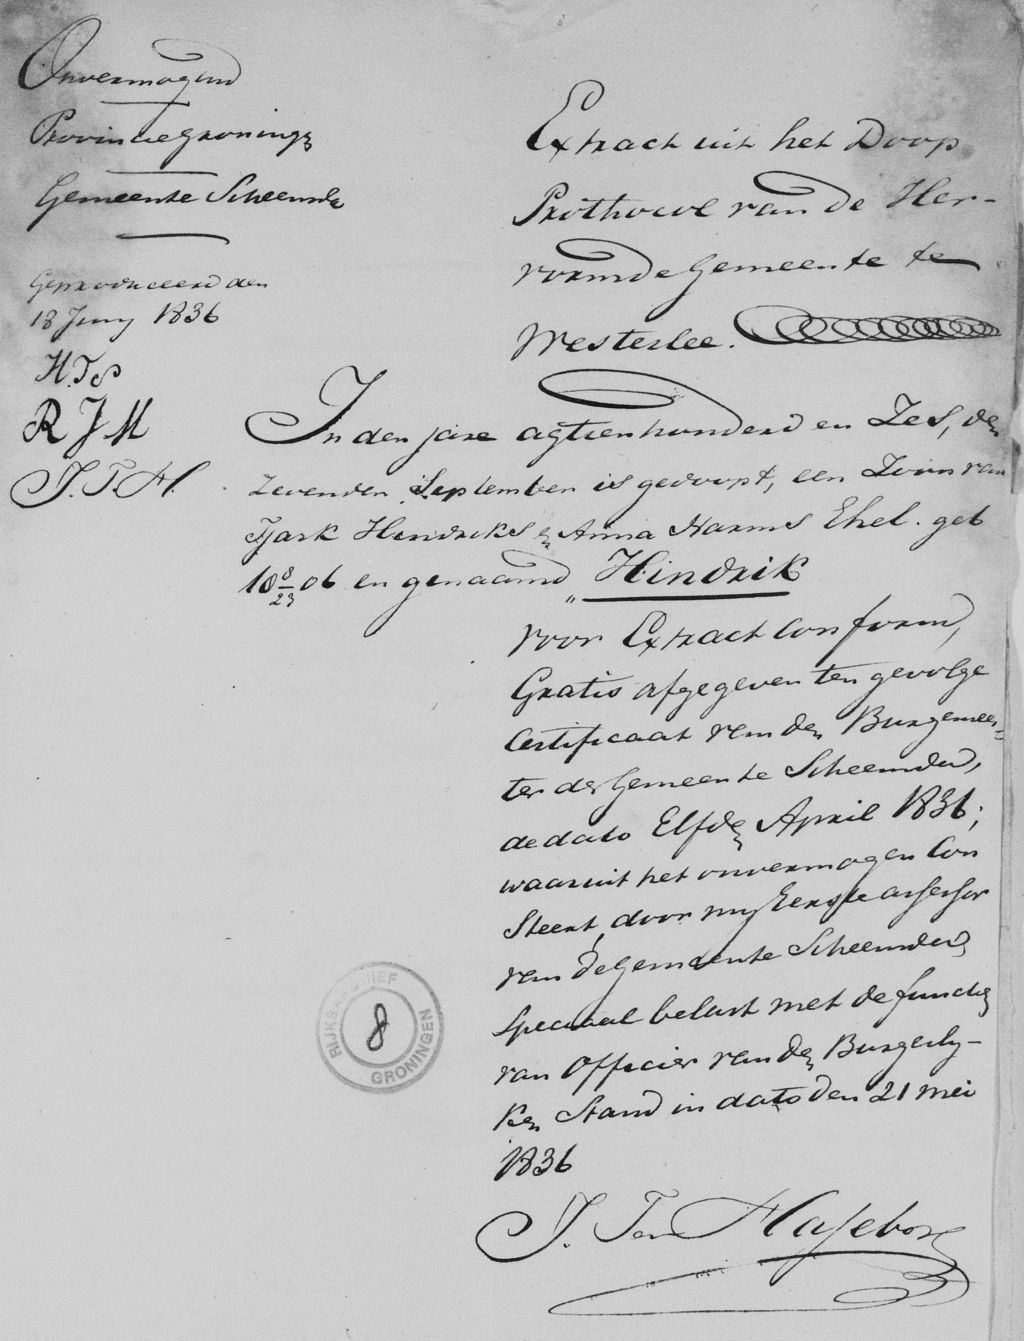 Onvermogend
Provincie Groningn
Gemeente Scheemda
Geproduceerd den
18 Juny 1836
H.T.S
R J M
J. T. H.
Extract uit het Doop
Prothocol van de Her-
vormde Gemeente te
Westerlee.
In den jare agtienhonderd en Zes, den
Zevenden September is gedoopt, een Zoon van
Tjark Hindriks en Anna Harms Ehel. geb
18 8/23 06 en genaamd „ Hindrik
voor Extract Conform,
Gratis afgegeven ten gevolge
Certificaat van den Burgemees-
ter der Gemeente Scheemda,
de dato Elfden April 1836;
waaruit het onvermogen Con
steert, door my Eerste assessor
van de Gemeente Scheemda,
speciaal belast met de functie
van Officier van den Burgerly-
ken Stand in dato den 21 mei
1836
J. Ten Haseborg
RIJKSARCHIEF
8
GRONINGEN